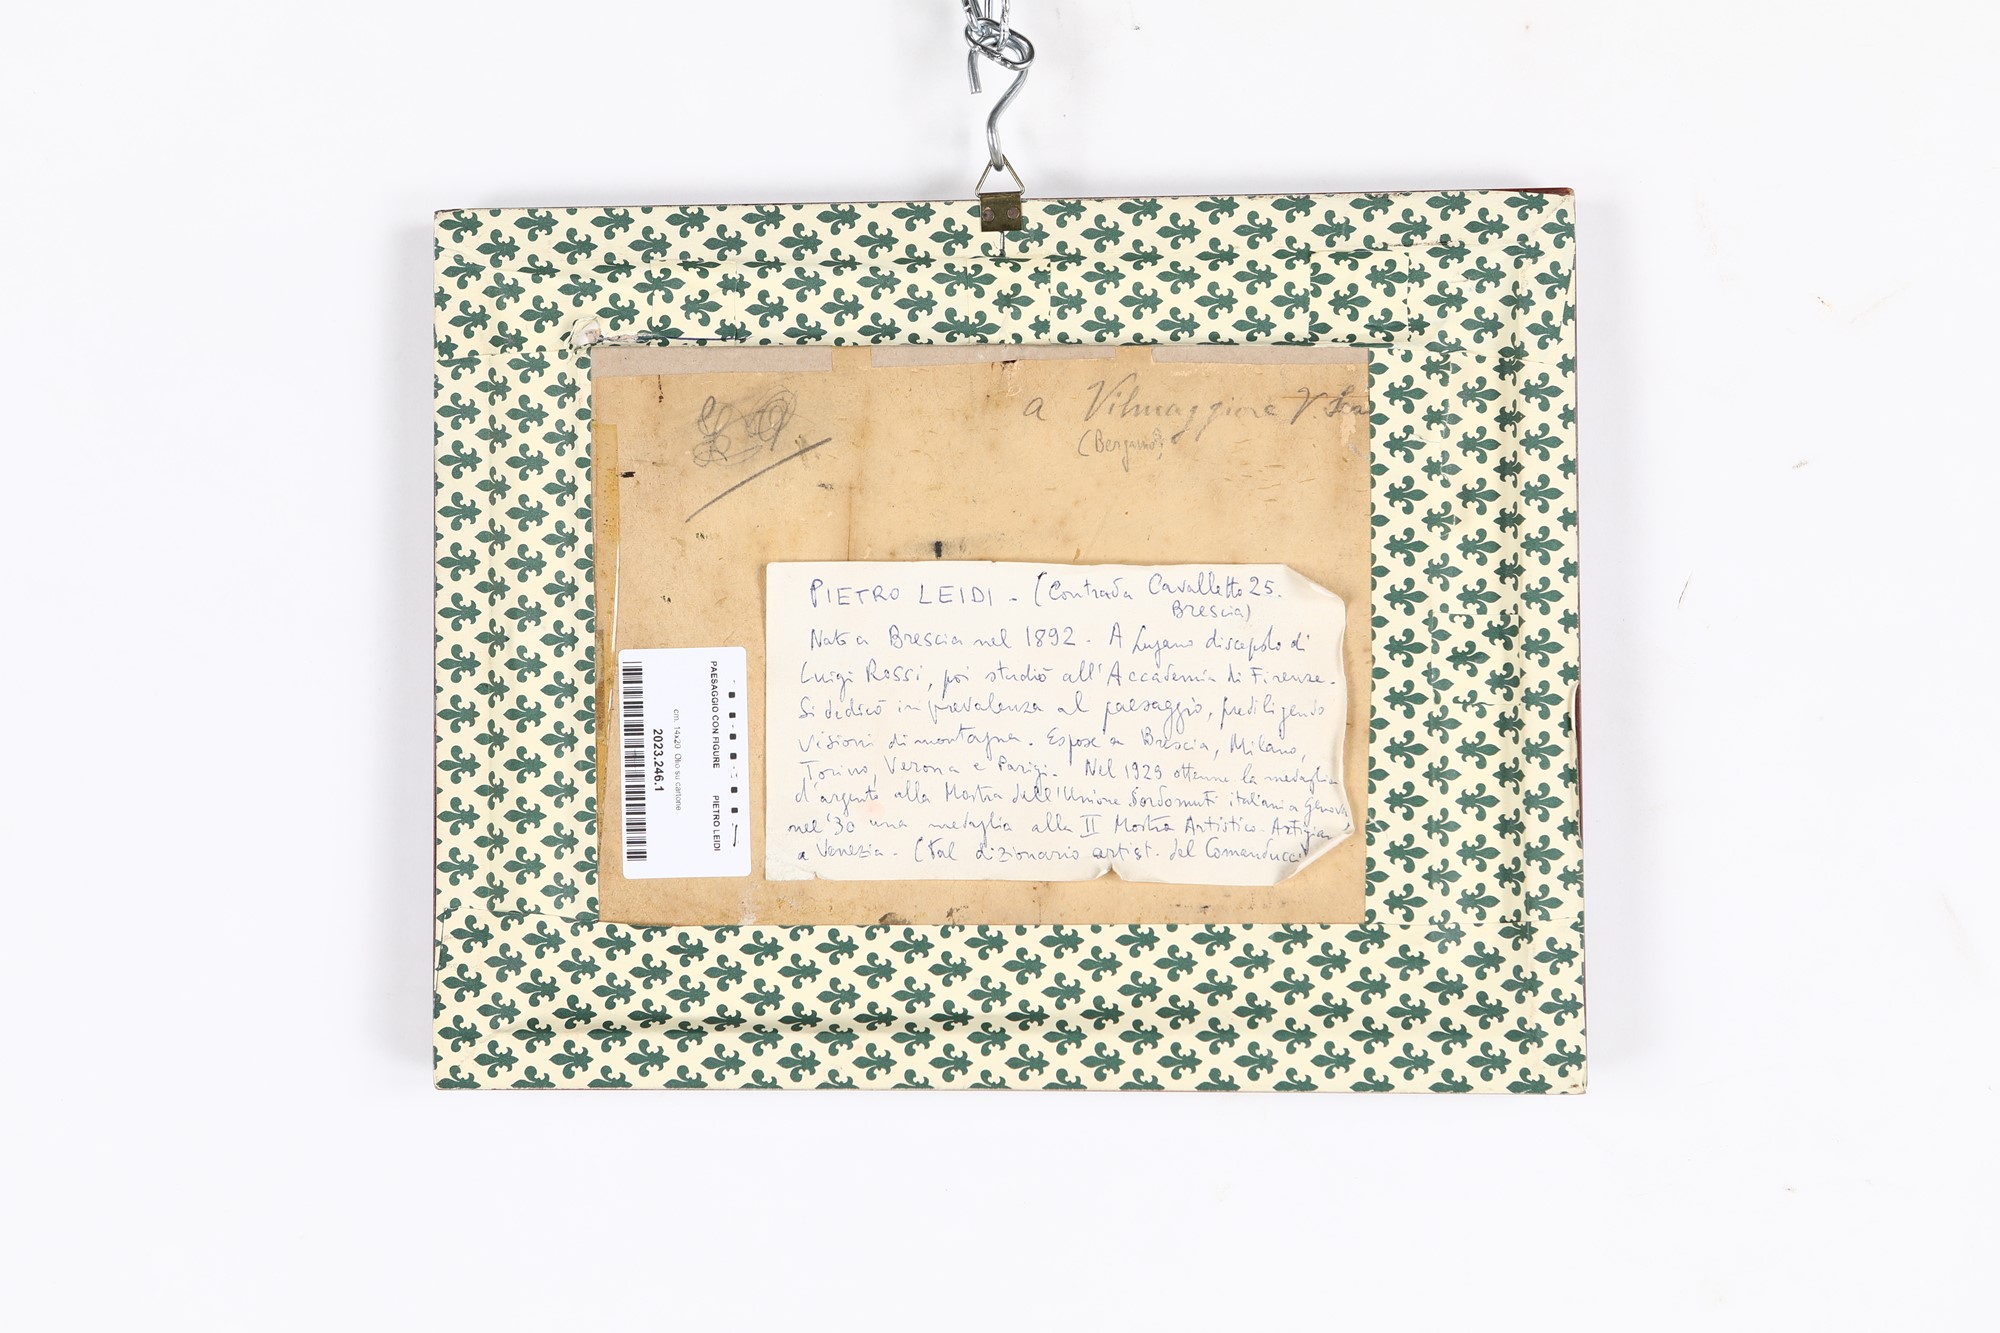 a Vilmaggiore V.
(Bergamo)
PIETRO LEIDI - (Contrada Cavalletto 25.
Brescia)
Nato a Brescia nel 1892 - A Lugano discepolo di
Luigi Rossi, poi studiò all'Accademia di Firenze -
Si dedicò in prevalenza al paesaggio, prediligendo
visioni di montagna. Espose a Brescia, Milano,
Torino, Verona e Parigi. Nel 1929 ottenne la medaglia
d'argento alla Mostra dell'Unione Sordomuti italiani a Genova
nel '30 una medaglia alla II Mostra Artistico-Artigian
a Venezia - (dal dizionario artist. del Comanducci
PAESAGGIO CON FIGURE PIETRO LEIDI
cm. 14x20 Olio su cartone
2023.246.1